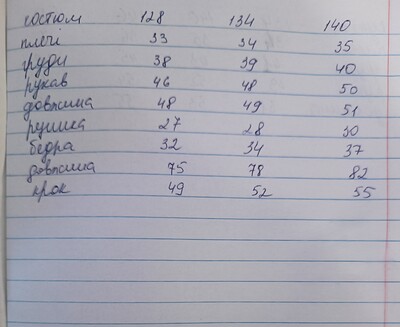 костюм 128 134 140
плечі 33 34 35
груди 38 39 40
рукав 46 48 50
довжина 48 49 51
резинка 27 28 30
бедра 32 34 37
довжина 75 78 82
крок 49 52 55